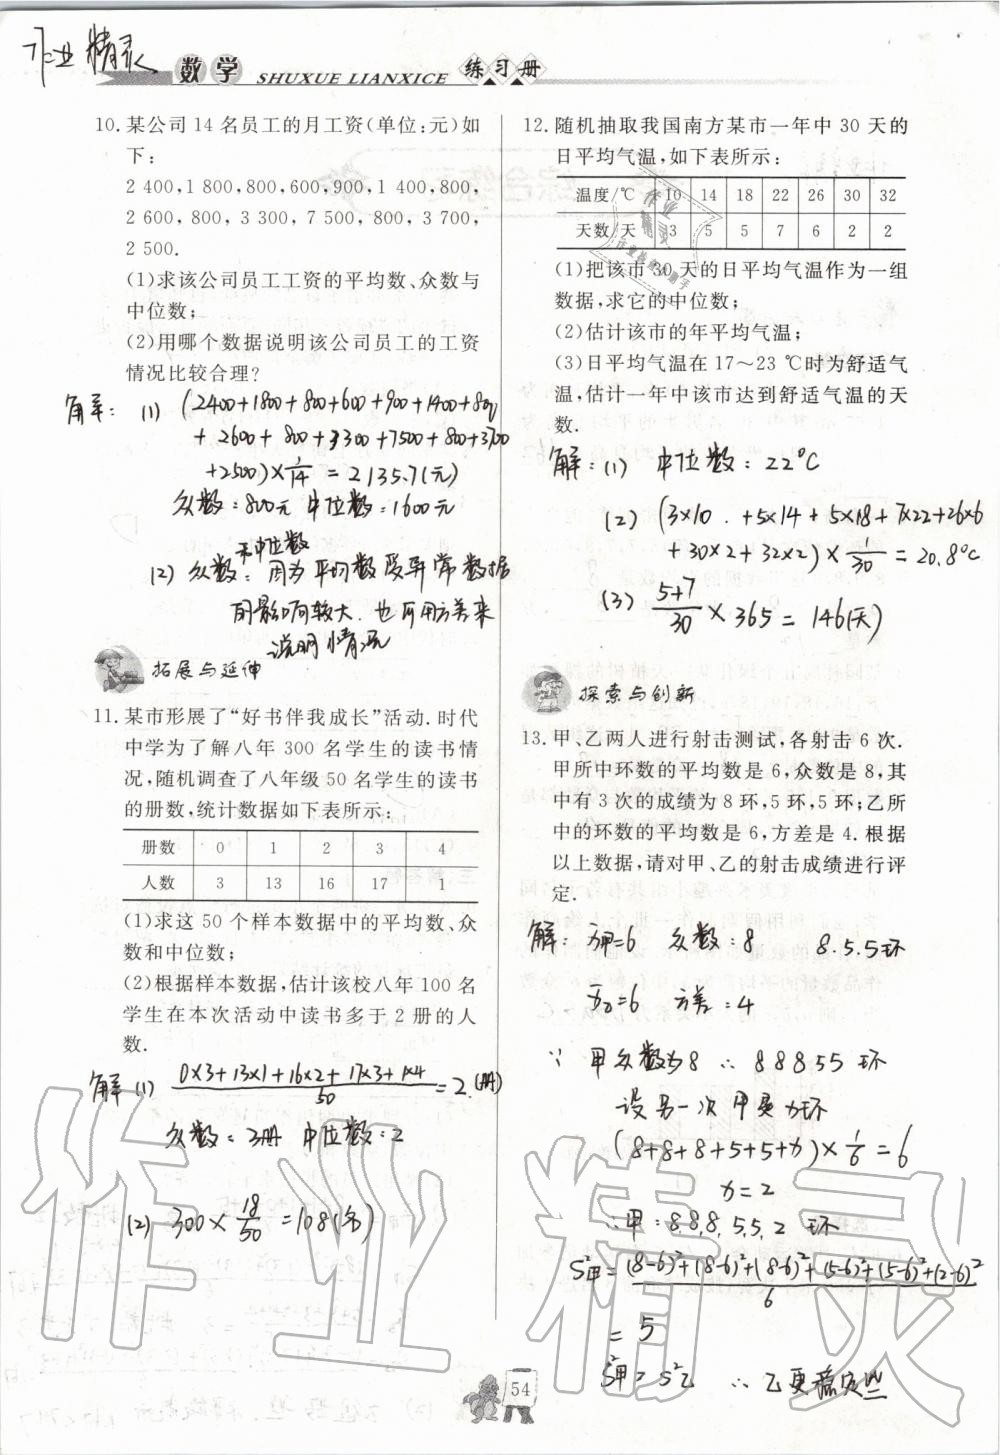 作业精灵
数学 SHUXUE LIANXICE 练习册
10. 某公司 14 名员工的月工资(单位:元)如
下:
2 400,1 800,800,600,900,1 400,800,
2 600,800,3 300,7 500,800,3 700,
2 500.
(1)求该公司员工工资的平均数、众数与
中位数;
(2)用哪个数据说明该公司员工的工资
情况比较合理?
解: (1) (2400+1800+800+600+900+1400+800
+2600+800+3300+7500+800+3700
+2500)×1/14=2135.7(元)
众数:800元 中位数:1600元
(2) 众数: 因为平均数受异常数据
的影响较大.也可用方差来
说明情况
拓展与延伸
11. 某市形展了“好书伴我成长”活动. 时代
中学为了解八年 300 名学生的读书情
况,随机调查了八年级 50 名学生的读书
的册数,统计数据如下表所示:
册数 0 1 2 3 4
人数 3 13 16 17 1
(1)求这 50 个样本数据中的平均数、众
数和中位数;
(2)根据样本数据,估计该校八年 100 名
学生在本次活动中读书多于 2 册的人
数.
解 (1) (0×3+13×1+16×2+17×3+1×4)/50=2.(册)
众数:3册 中位数:2
(2) 300×18/50=108(名)
12. 随机抽取我国南方某市一年中 30 天的
日平均气温,如下表所示:
温度/℃ 10 14 18 22 26 30 32
天数/天 3 5 5 7 6 2 2
(1)把该市 30 天的日平均气温作为一组
数据,求它的中位数;
(2)估计该市的年平均气温;
(3)日平均气温在 17～23 ℃时为舒适气
温,估计一年中该市达到舒适气温的天
数.
解:(1) 中位数:22°C
(2) (3×10+5×14+5×18+7×22+26×6
+30×2+32×2)×1/30=20.8°C
(3) (5+7)/30×365=146(天)
探索与创新
13. 甲、乙两人进行射击测试,各射击 6 次.
甲所中环数的平均数是 6,众数是 8,其
中有 3 次的成绩为 8 环,5 环,5 环;乙所
中的环数的平均数是 6,方差是 4. 根据
以上数据,请对甲、乙的射击成绩进行评
定.
解: x̄甲=6 众数:8 8.5.5环
x̄乙=6 方差=4
∵ 甲众数为8 ∴ 88855环
设另一次甲是x环
(8+8+8+5+5+x)×1/6=6
x=2
∴甲:8,8,8,5,5,2 环
S²甲=((8-6)²+(8-6)²+(8-6)²+(5-6)²+(5-6)²+(2-6)²)/6
=5
S²甲>S²乙 ∴乙更稳定些
54
作业精灵